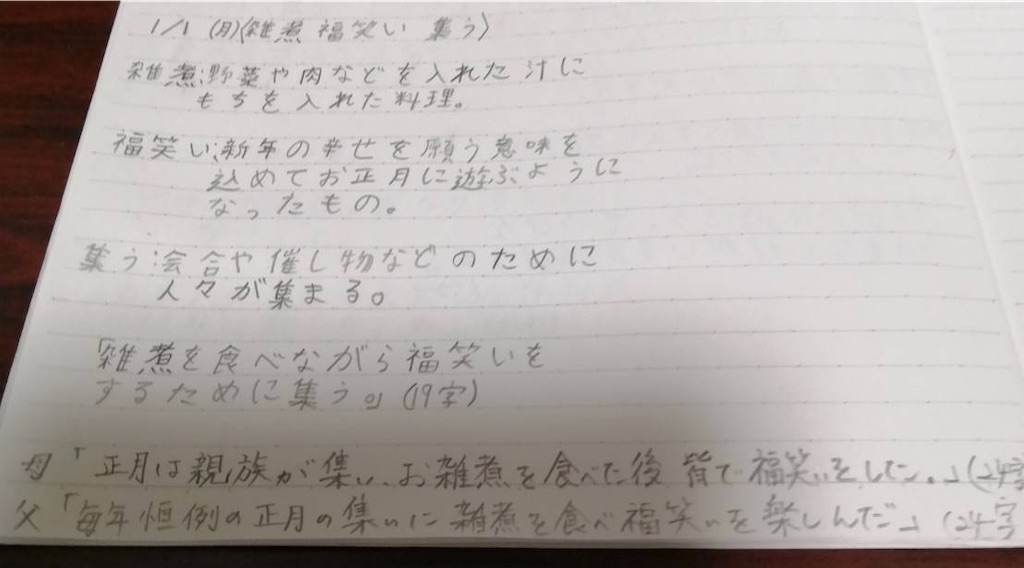 1/1 (月)(雑煮 福笑い 集う)
雑煮:野菜や肉などを入れた汁に
もちを入れた料理。
福笑い:新年の幸せを願う意味を
込めてお正月に遊ぶように
なったもの。
集う:会合や催し物などのために
人々が集まる。
「雑煮を食べながら福笑いを
するために集う。」(19字)
母「正月は親族が集い、お雑煮を食べた後 皆で福笑いをした。」(24字
父「毎年恒例の正月の集いに雑煮を食べ福笑いを楽しんだ」(24字